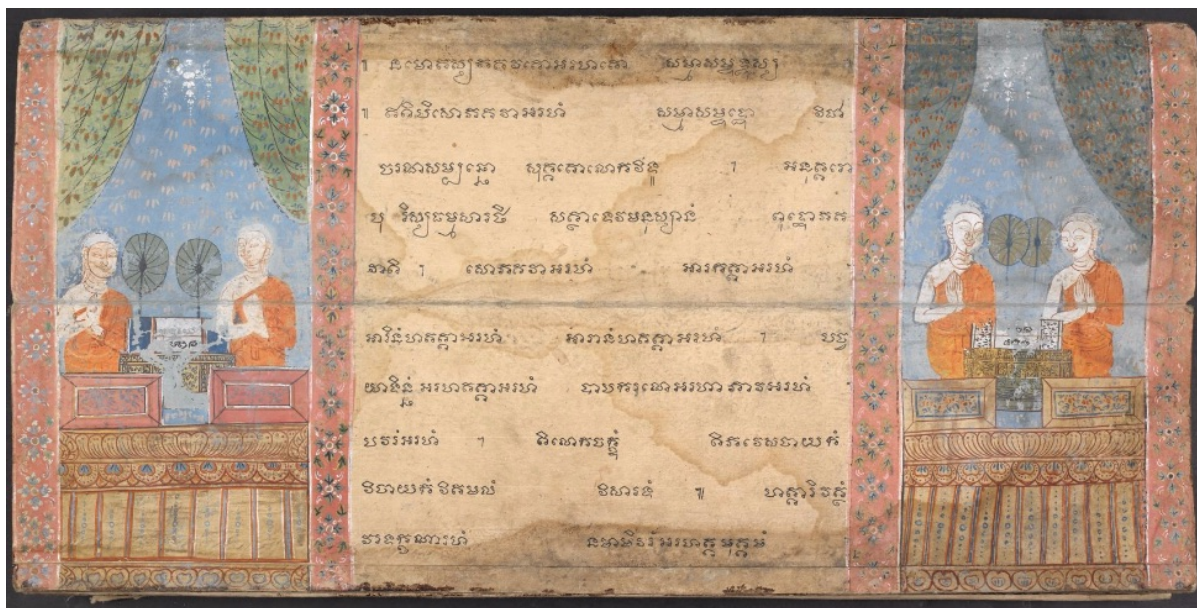 ៗ នមោតស្សភគវតោអរហតោ សម្មាសម្ពុទ្ធស្ស
ៗ ឥតិបិសោភគវាអរហំ សម្មាសម្ពុទ្ធោ វិជា
ចរណសម្បន្នោ សុគ្គតោលោកវិទូ ៗ អនុត្តរោ
បុ រិស្សធម្មសារថី សត្ថាទេវមនុស្សានំ ពុទ្ធោភគ
វាតិ ៗ សោភគវាអរហំ អារកត្តាអរហំ
អារីនំហតត្តាអរហំ អារានំហតត្តាអរហំ ៗ បច្ច
យាទីនំ អរហតត្តាអរហំ បាបករណេអរហាភាវអរហំ
បវរំអរហំ ៗ តិលោកចក្ខុំ តិភវេសនាយកំ
វិនាយកំ វិគមលំ វិសារទំ ៗ ហត្ថារិវគ្គំ
វរទក្ខណារហំ នមាមិវរំ អរហត្តមុត្តមំ